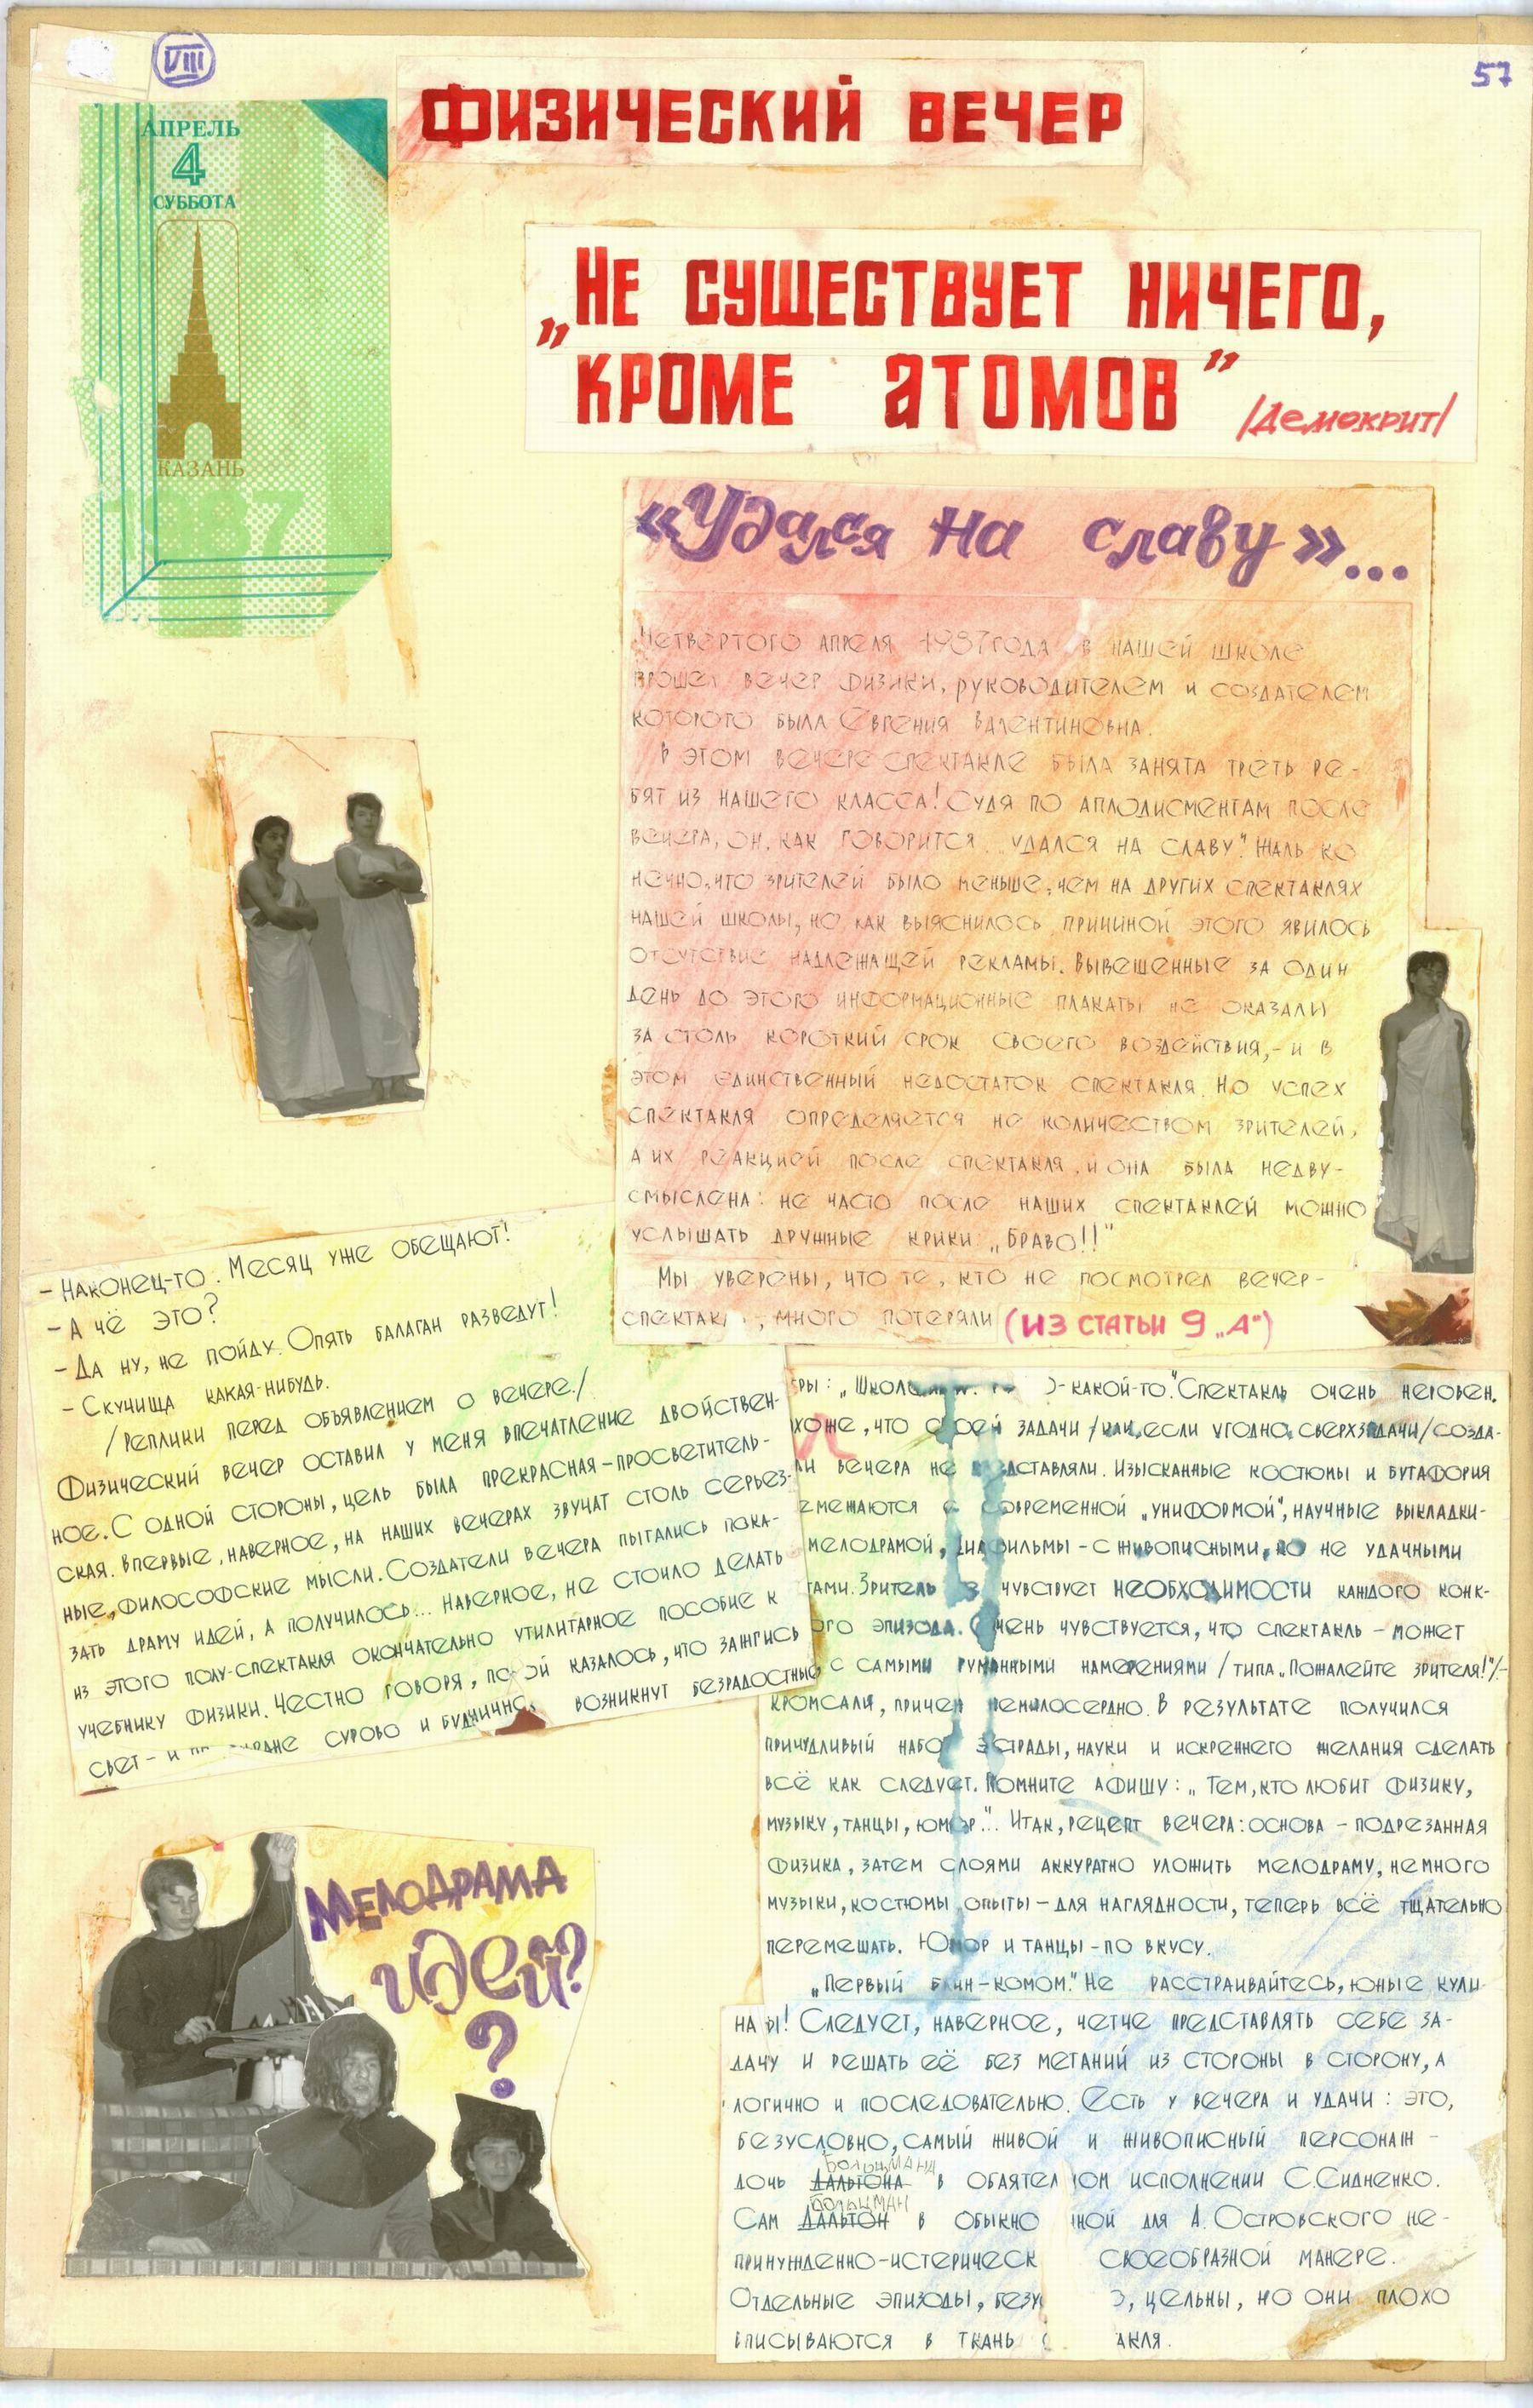 VIII
57
АПРЕЛЬ
4
СУББОТА
КАЗАНЬ
1987
ФИЗИЧЕСКИЙ ВЕЧЕР
„НЕ СУЩЕСТВУЕТ НИЧЕГО,
КРОМЕ АТОМОВ”
/Демокрит/
«Удался на славу»...
Четвертого апреля 1987 года в нашей школе
прошел вечер физики, руководителем и создателем
которого была Евгения Валентиновна.
В этом вечере спектакле была занята треть ре-
бят из нашего класса! Судя по аплодисментам после
вечера, он, как говорится „удался на славу". Жаль ко
нечно, что зрителей было меньше, чем на других спектаклях
нашей школы, но как выяснилось причиной этого явилось
отсутствие надлежащей рекламы. Вывешенные за один
день до этого информационные плакаты не оказали
за столь короткий срок своего воздействия, - и в
этом единственный недостаток спектакля. Но успех
спектакля определяется не количеством зрителей,
а их реакцией после спектакля. и она была недву-
смыслена: не часто после наших спектаклей можно
услышать дружные крики „Браво!!"
Мы уверены, что те, кто не посмотрел вечер-
спектак , много потеряли (из статьи 9 „А")
- Наконец-то. Месяц уже обещают!
- А чё это?
- Да ну, не пойду. Опять балаган разведут!
- Скучища какая-нибудь.
/Реплики перед объявлением о вечере./
Физический вечер оставил у меня впечатление двойствен-
ное. С одной стороны, цель была прекрасная - просветитель-
ская. Впервые, наверное, на наших вечерах звучат столь серьез-
ные, философские мысли. Создатели вечера пытались пока-
зать драму идей, а получилось... Наверное, не стоило делать
из этого полу-спектакля окончательно утилитарное пособие к
учебнику физики. Честно говоря, по ой казалось, что зажгись
свет - и на экране сурово и буднично возникнут безрадостные
ры: „Школ )-какой-то". Спектакль очень неровен.
хоже, что своей задачи /или, если угодно, сверхзадачи/ созда-
ли вечера не представляли. Изысканные костюмы и бутафория
емежаются с современной „униформой", научные выкладки-
мелодрамой, диафильмы - с живописными, но не удачными
тами. Зритель не чувствует необходимости каждого конк-
ого эпизода. Очень чувствуется, что спектакль - может
с самыми гуманными намерениями /типа „Пожалейте зрителя!"/-
кромсали, причем немилосердно. В результате получился
причудливый набор эстрады, науки и искреннего желания сделать
всё как следует. Помните афишу: „Тем, кто любит физику,
музыку, танцы, юмор...". Итак, рецепт вечера: основа - подрезанная
физика, затем слоями аккуратно уложить мелодраму, немного
музыки, костюмы опыты - для наглядности, теперь всё тщательно
перемешать. Юмор и танцы - по вкусу.
„Первый блин - комом". Не расстраивайтесь, юные кули
на ы! Следует, наверное, четче представлять себе за-
дачу и решать её без метаний из стороны в сторону, а
логично и последовательно. Есть у вечера и удачи: это,
безусловно, самый живой и живописный персонаж -
Больцмана
дочь Дальтона в обаятел ном исполнении С. Сидненко.
Больцман
Сам Дальтон в обыкно нной для А. Островского не-
принужденно-истерическ своеобразной манере.
Отдельные эпизоды, безу о, цельны, но они плохо
вписываются в ткань с акля.
Мелодрама
идей?
?